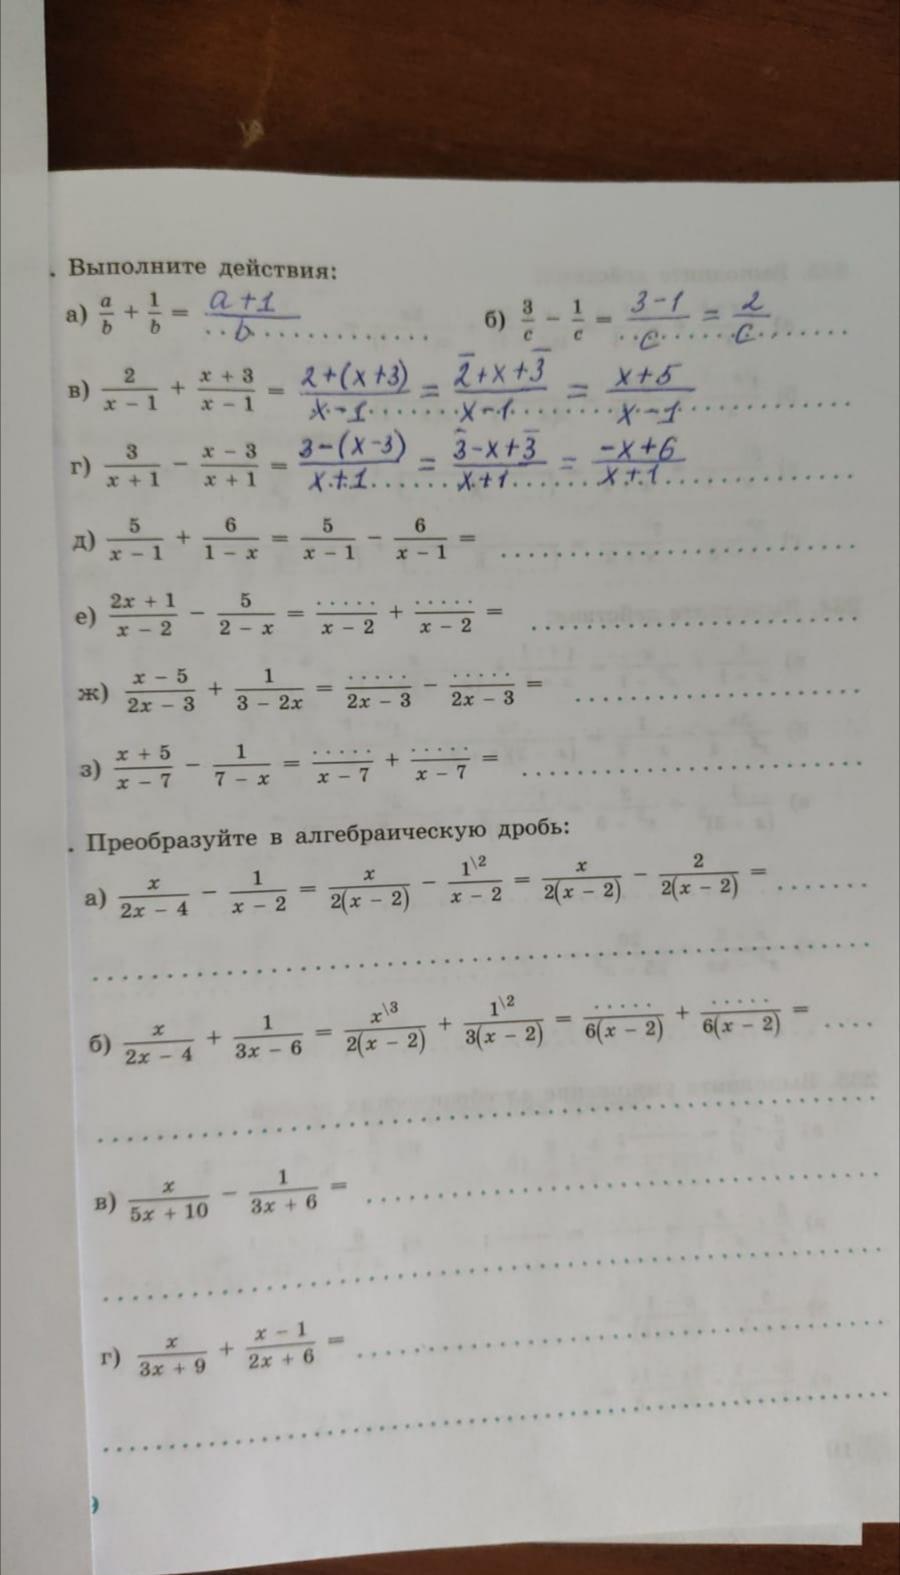 . Выполните действия:
а) a/b + 1/b = a+1/b б) 3/c − 1/c = 3−1/c = 2/c
в) 2/(x − 1) + (x + 3)/(x − 1) = (2+(x+3))/(x−1) = (2+x+3)/(x−1) = (x+5)/(x−1)
г) 3/(x + 1) − (x − 3)/(x + 1) = (3−(x−3))/(x+1) = (3−x+3)/(x+1) = (−x+6)/(x+1)
д) 5/(x − 1) + 6/(1 − x) = 5/(x − 1) − 6/(x − 1) = ..........
е) (2x + 1)/(x − 2) − 5/(2 − x) = ...../(x − 2) + ...../(x − 2) = ..........
ж) (x − 5)/(2x − 3) + 1/(3 − 2x) = ...../(2x − 3) − ...../(2x − 3) = ..........
з) (x + 5)/(x − 7) − 1/(7 − x) = ...../(x − 7) + ...../(x − 7) = ..........
. Преобразуйте в алгебраическую дробь:
а) x/(2x − 4) − 1/(x − 2) = x/(2(x − 2)) − 1\2/(x − 2) = x/(2(x − 2)) − 2/(2(x − 2)) = .......
б) x/(2x − 4) + 1/(3x − 6) = x\3/(2(x − 2)) + 1\2/(3(x − 2)) = ...../(6(x − 2)) + ...../(6(x − 2)) = ....
в) x/(5x + 10) − 1/(3x + 6) = ..........
г) x/(3x + 9) + (x − 1)/(2x + 6) = ..........